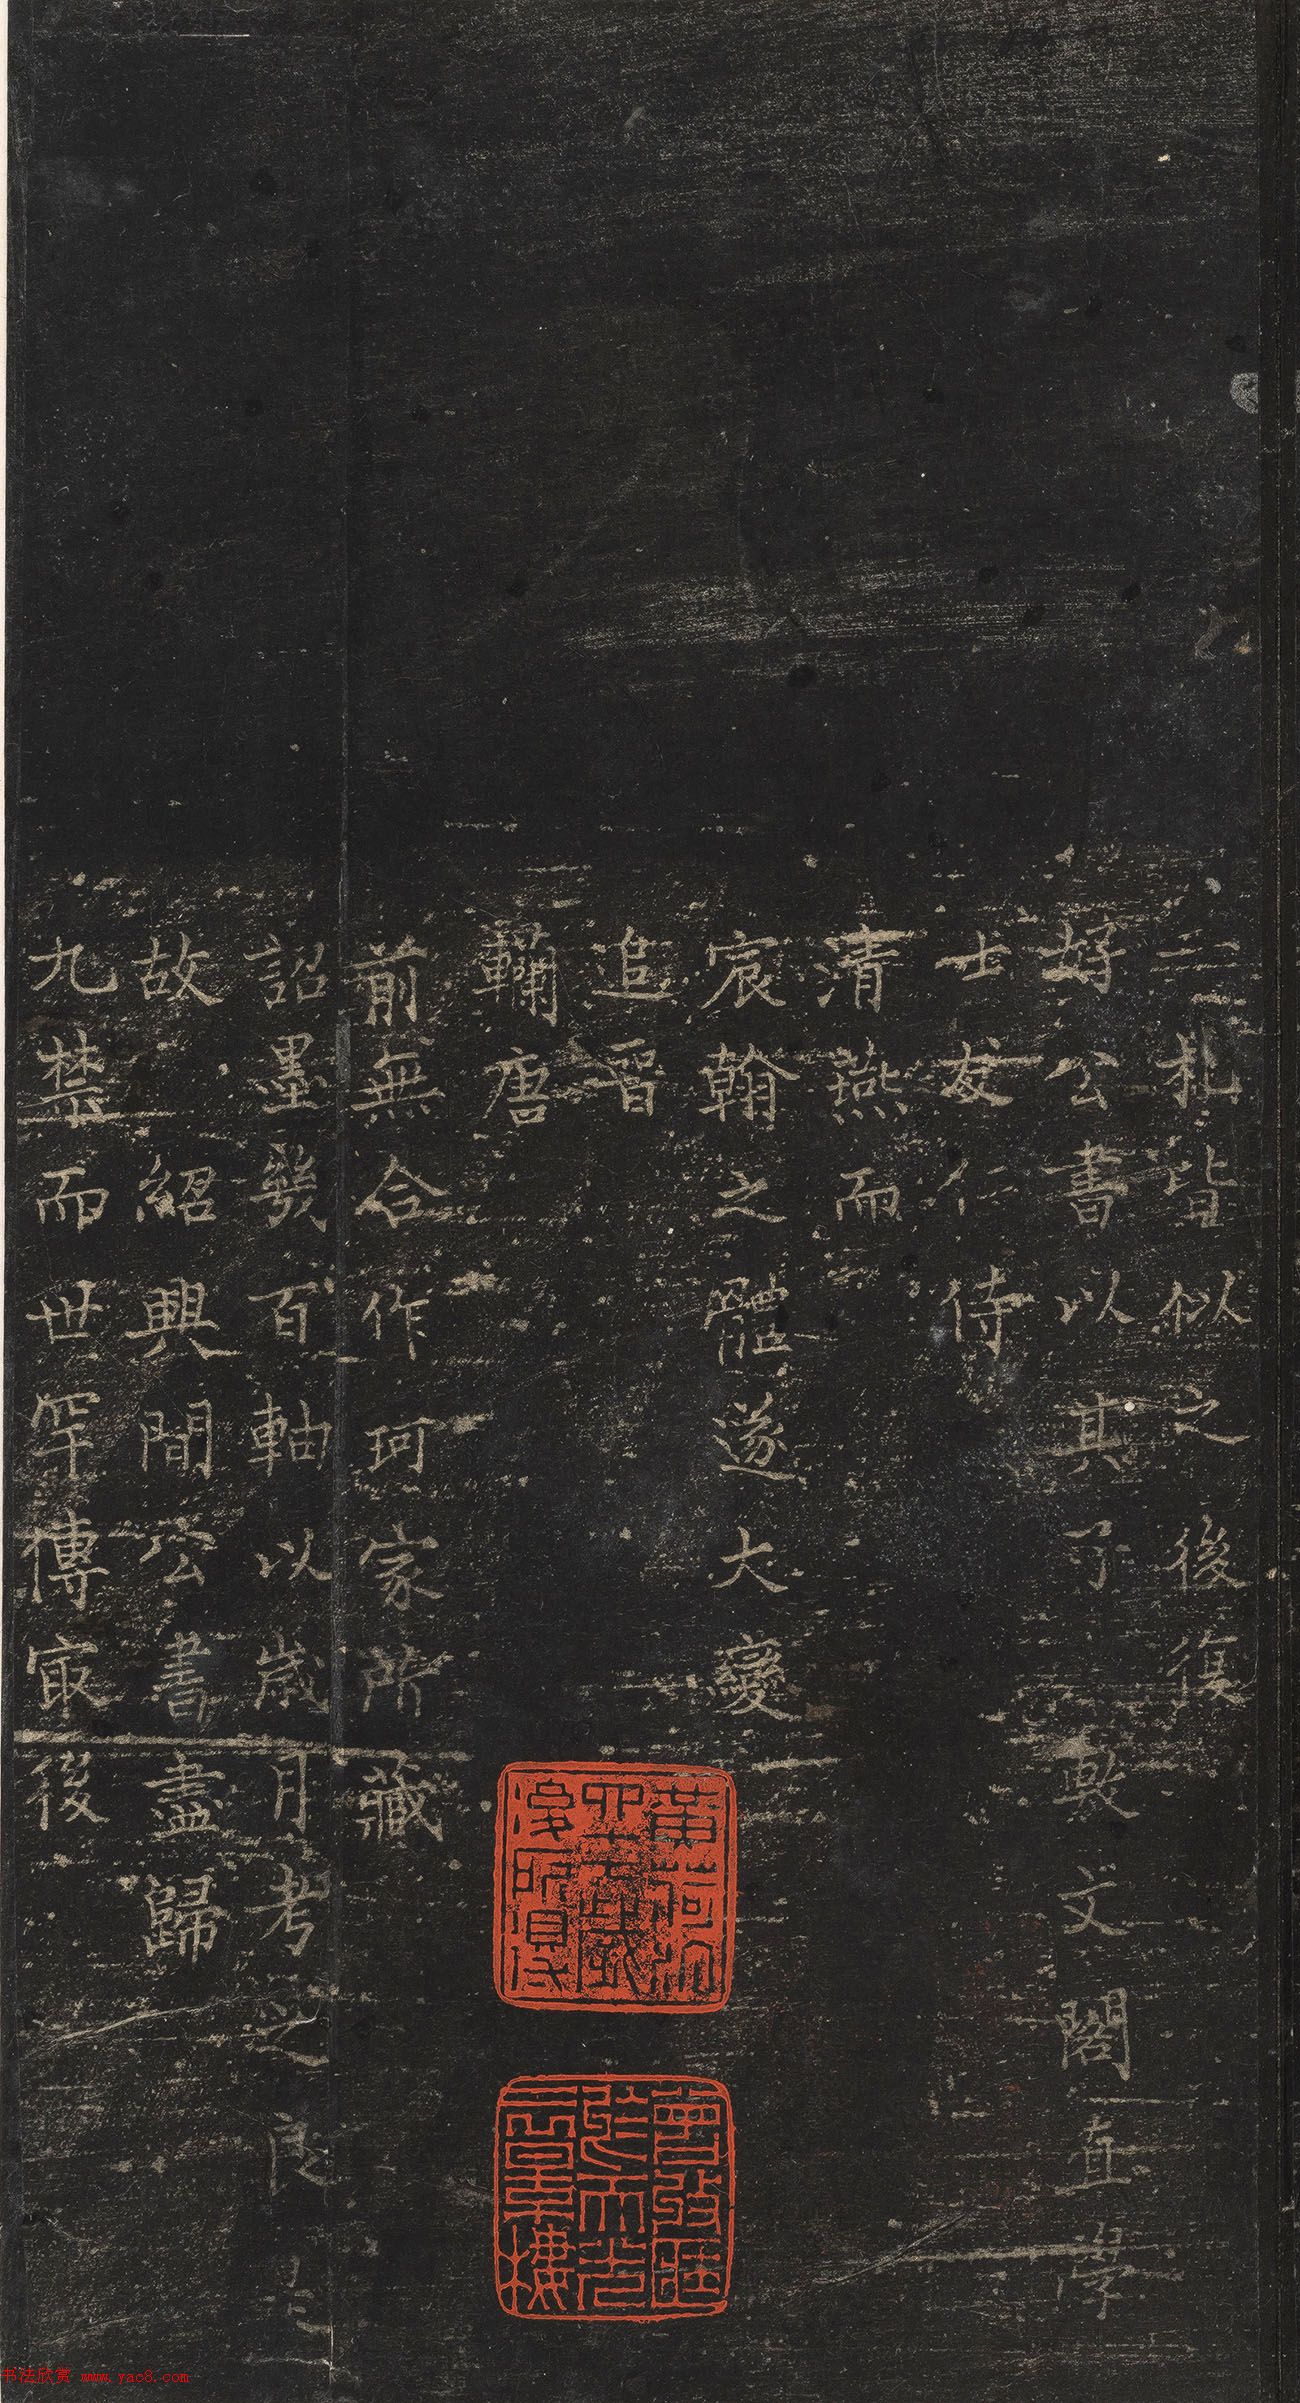 二札皆似之後復
好公書以其子敷文閣直學
士友仁侍
清燕而
宸翰之體遂大變
追晉
轥唐
前無合作珂家所藏
詔墨幾百軸以歲月考之良是
故紹興間公書盡歸
九禁而世罕傳寂後
書法欣赏 www.yac8.com